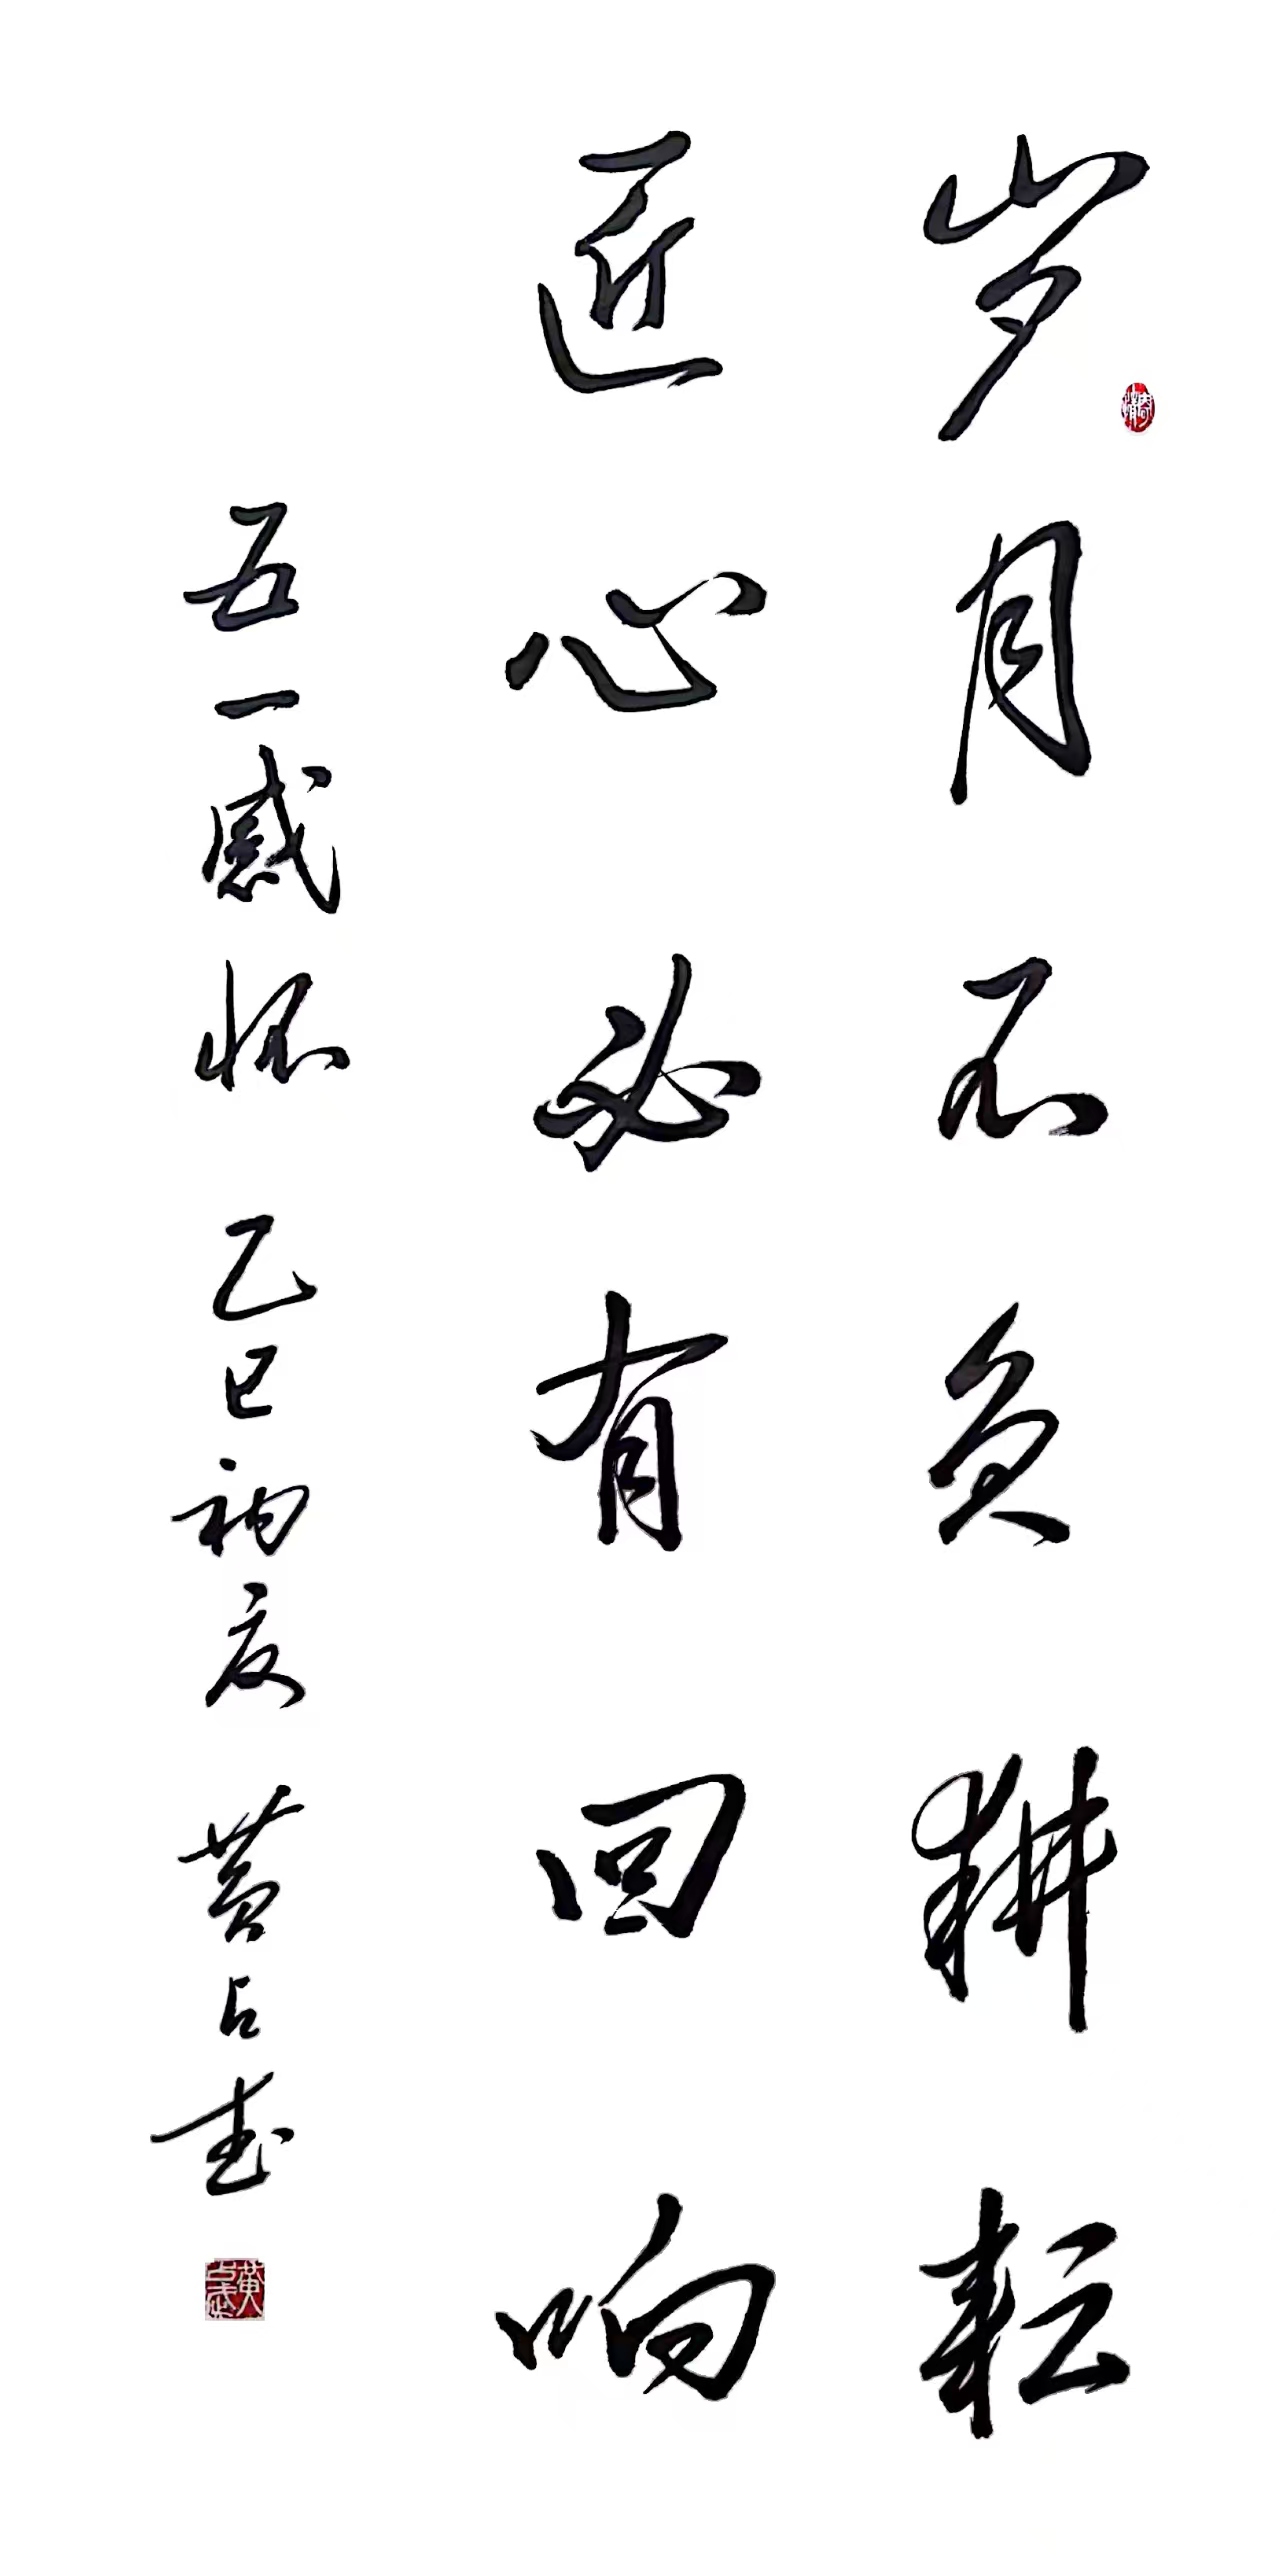 岁月不负耕耘
匠心必有回响
五一感怀 乙巳初夏 黄占武
黄占武